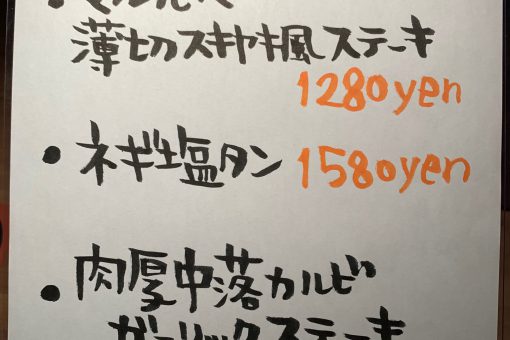 薄切スキヤキ風ステーキ
1280yen
・ネギ塩タン 1580yen
・肉厚中落カルビ
ガーリックステーキ